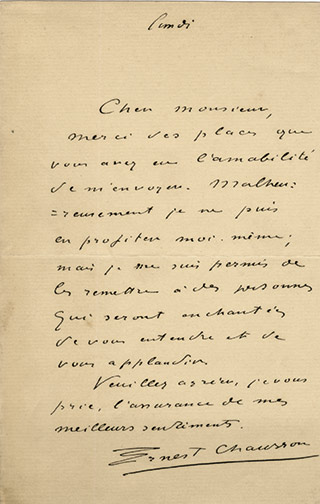 Lundi
Cher monsieur,
merci des places que
vous avez eu l'amabilité
de m'envoyer. Malheu=
=reusement je ne puis
en profiter moi-même;
mais je me suis permis de
les remettre à des personnes
qui seront enchantées
de vous entendre et de
vous applaudir.
Veuillez agréer, je vous
prie, l'assurance de mes
meilleurs sentiments.
Ernest Chausson